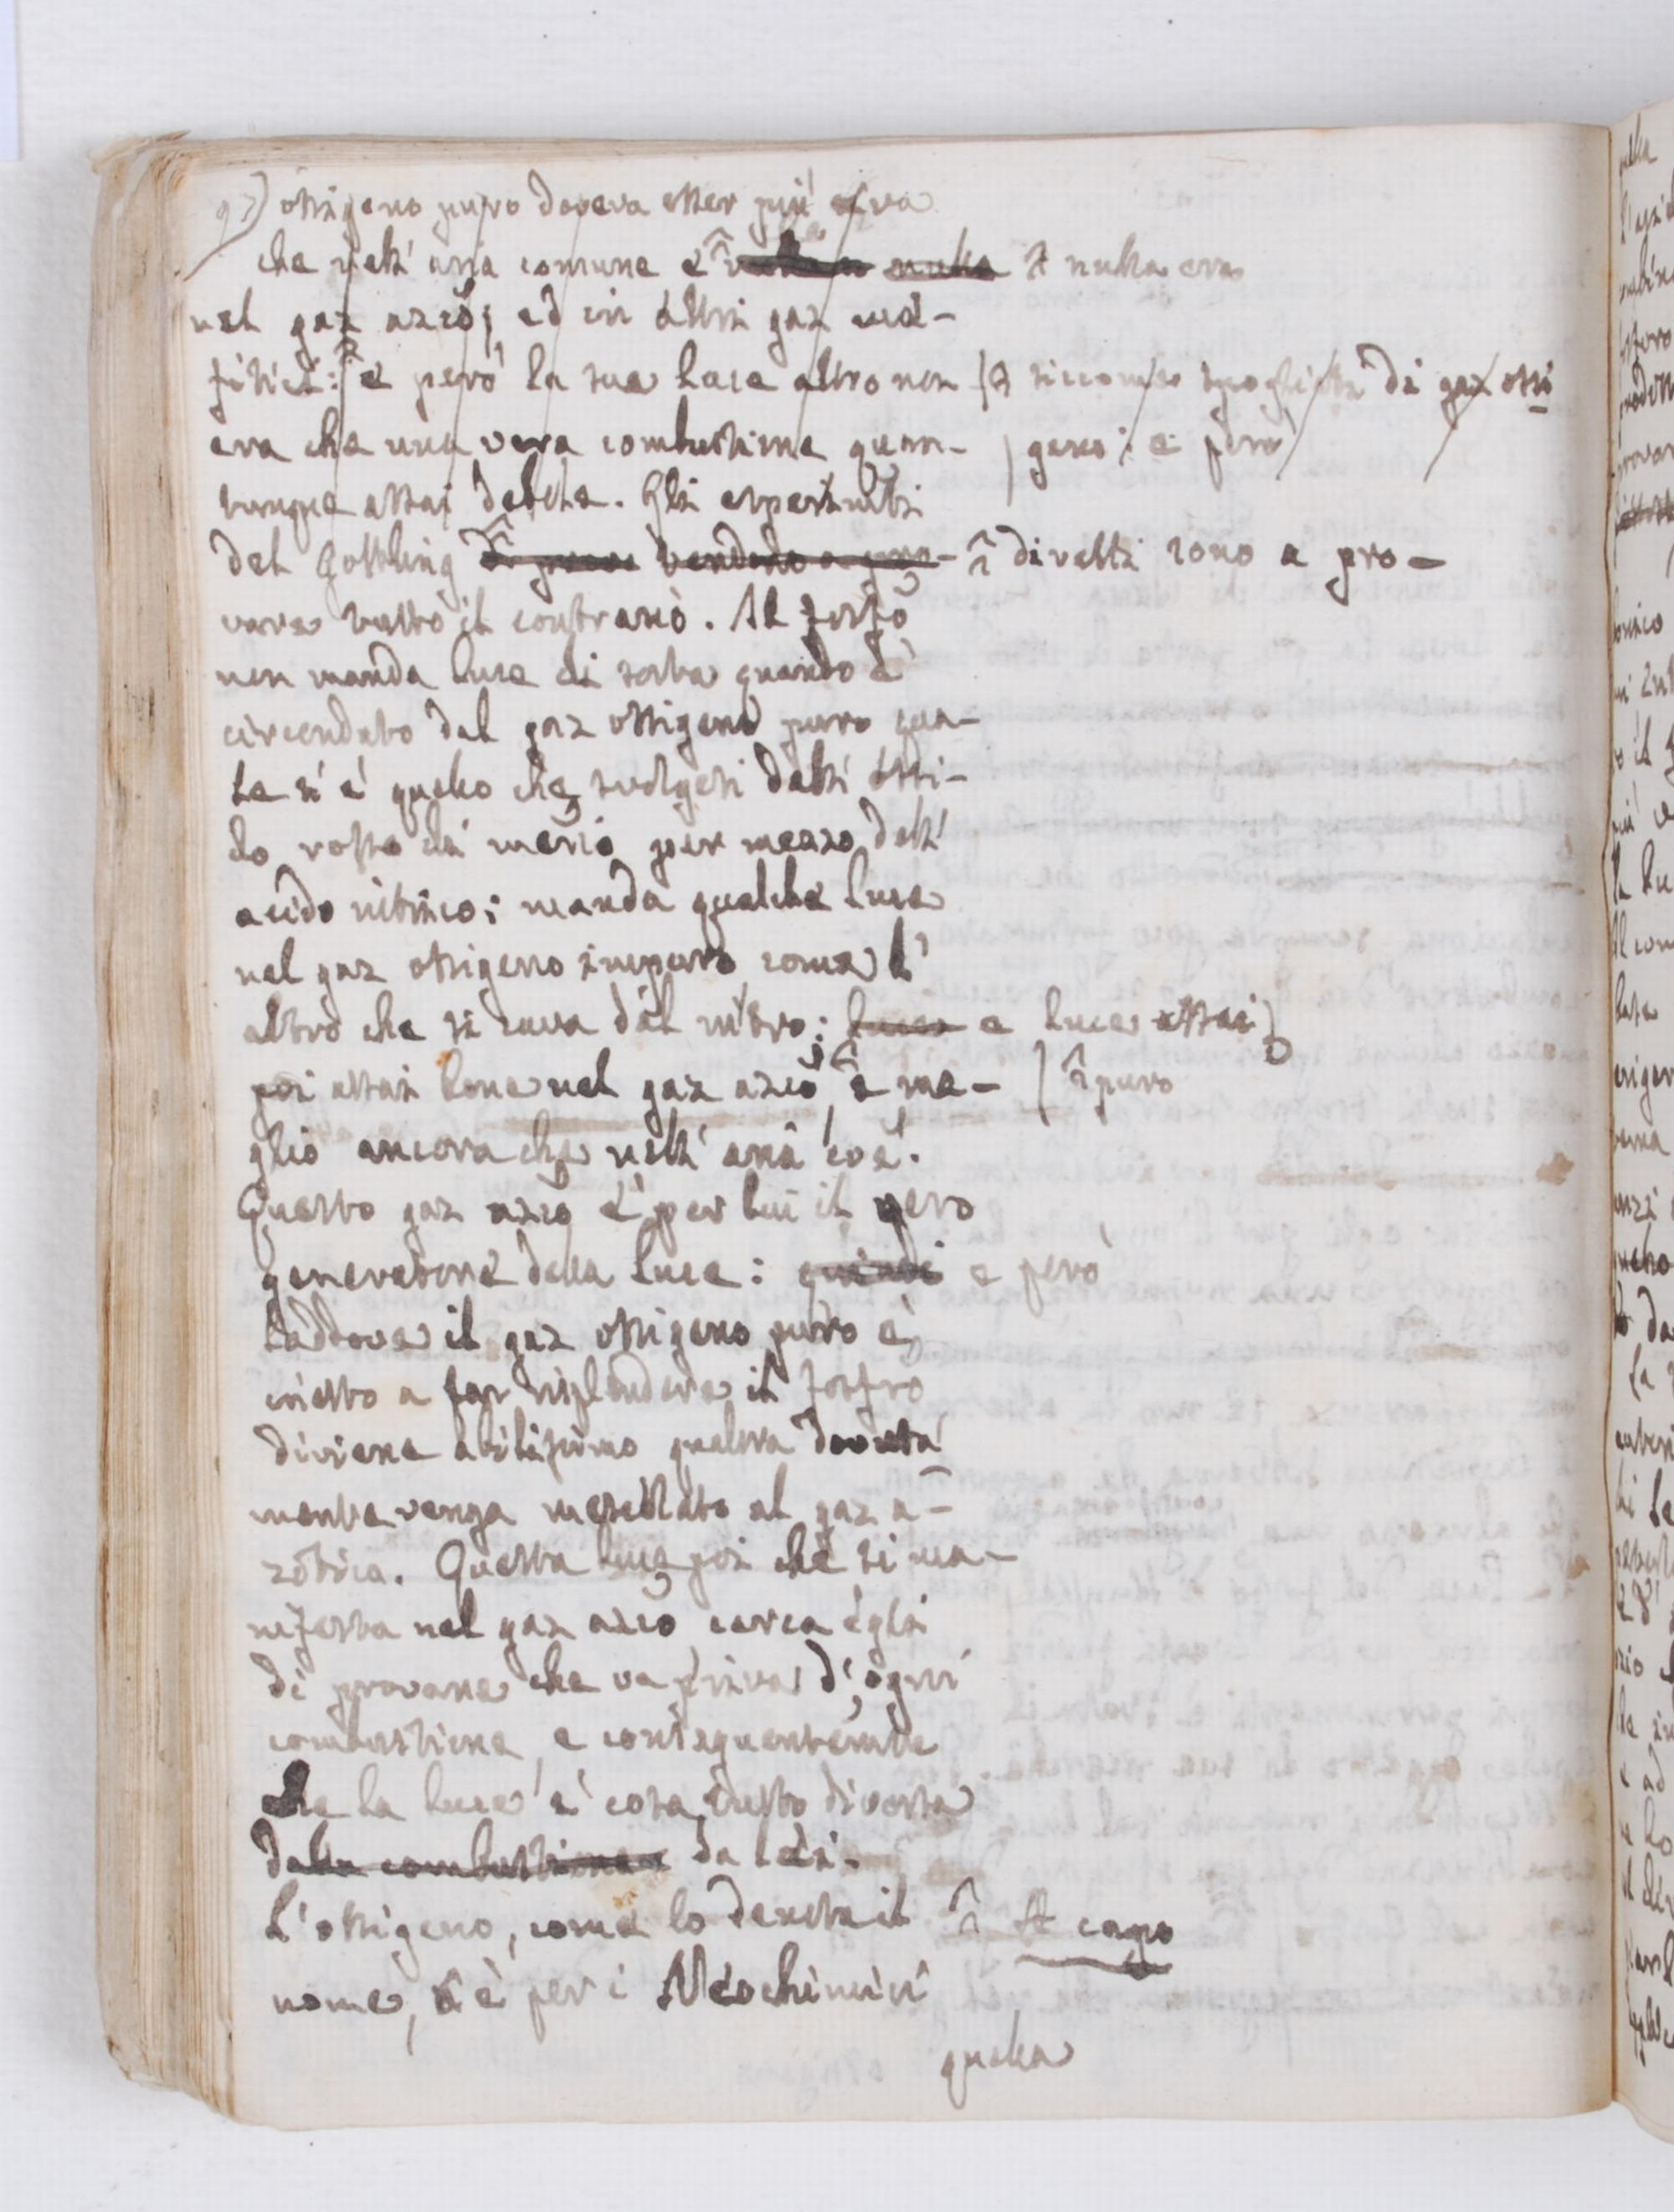 97) ossigeno puro doveva esser più viva
che nell' aria comune e nulla # nulla era
nel gaz azoto; ed in altri gaz me-
fitici: e però la sua luce altro non siccome spogliati di gaz ossi
era che una vera combustione quan- geno: e però
tunque assai debile. Gli esperimti
del Gottling tendono a pro- diretti sono a pro-
vare tutto il contrario. Il fosfo
non manda luce di sorta quando è
circondato dal gaz ossigeno puro qua-
le si è quello che svolgesi dall' ossi-
do rosso di merio per mezzo dell'
acido nitrico; manda qualche luce
nel gaz ossigeno impuro come l'
altro che si cava dal nitro: luce e luce assai
poi assai bene nel gaz azoo, e me- puro
glio ancora che nell' aria coe.
Questo gaz azoo è per lui il vero
generatore della luce: quindi e però
laddove il gaz ossigeno puro è
inetto a far risplendere il fosfro
diviene abilissimo qualora dovuta
mente venga mescolato al gaz a-
zotico. Questa luce poi che si ma-
nifesta nel gaz azoo cerca egli
di provare che va priva d' ogni
combustione e conseguentemte
che la luce è cosa tutto diversa
dalla combustione da lei.
L' ossigeno, come lo denota il A capo
nome, si è per i Neochimici
quella